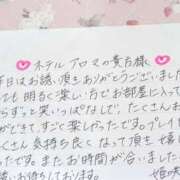 ♡ホテル アロマの貴方様♡
本日はお誘い頂きありがとうございました
ても明るく楽しい方でお部屋に入って
らずっと笑いっぱなしで、たくさんお
ができて、すごく楽しかったです。プレイ
くさん気持ち良くなって頂き嬉
たです。またお時間が合いました
お待ちしております。